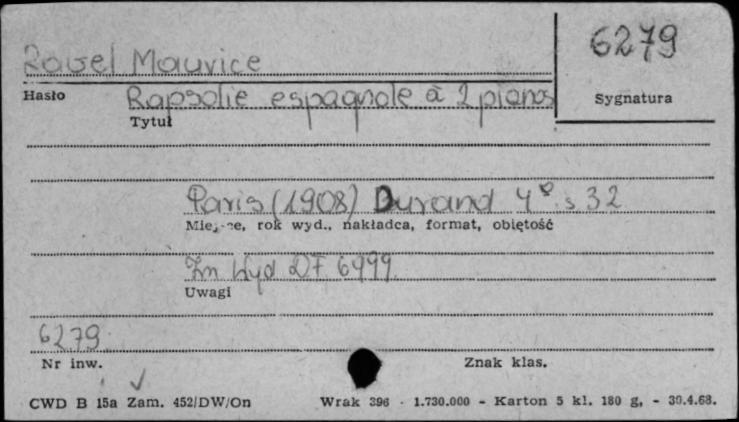 6279
Ravel Maurice
Hasło
Rapsodie espagnole à 2 pianos
Sygnatura
Tytuł
Paris (1908) Durand 4° s 32
Miejsce, rok wyd., nakładca, format, objętość
Zn Wyd DF 6999
Uwagi
6279
Nr inw.
Znak klas.
CWD B 15a Zam. 452/DW/On Wrak 396 - 1.730.000 - Karton 5 kl. 180 g, - 30.4.68.